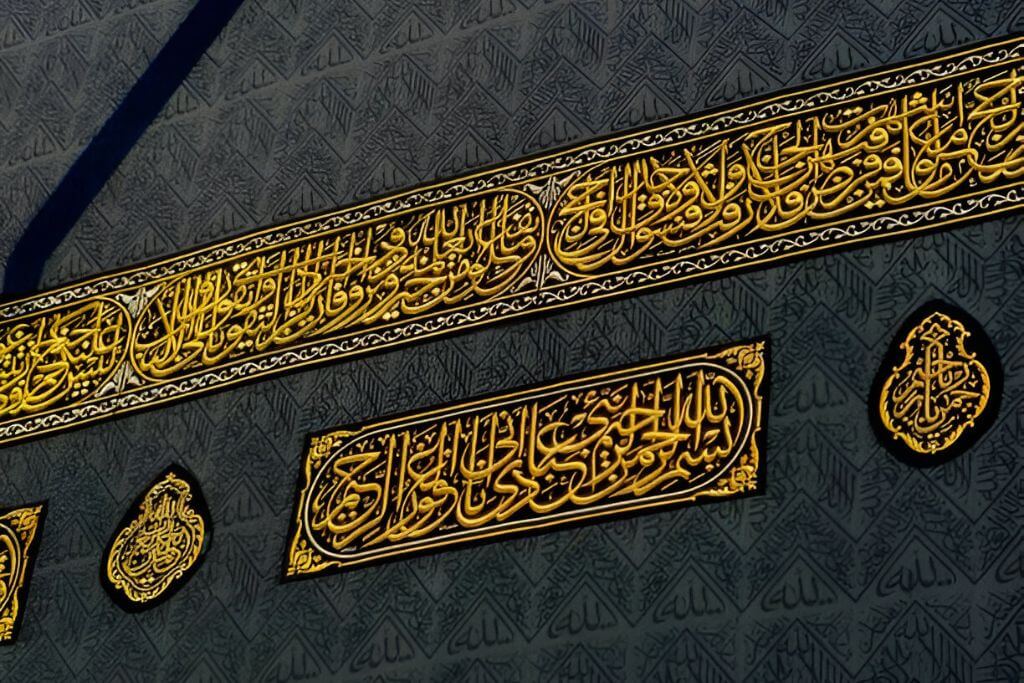 الحج أشهر معلومات فمن فرض فيهن الحج فلا رفث ولا فسوق ولا جدال في الحج
وما تفعلوا من خير يعلمه الله وتزودوا فإن خير الزاد التقوى واتقون يا أولي الألباب
ليس عليكم جناح أن تبتغوا
يا رحمن يا رحيم
بسم الله الرحمن الرحيم نبئ عبادي أني أنا الغفور الرحيم
الحمد لله رب العالمين